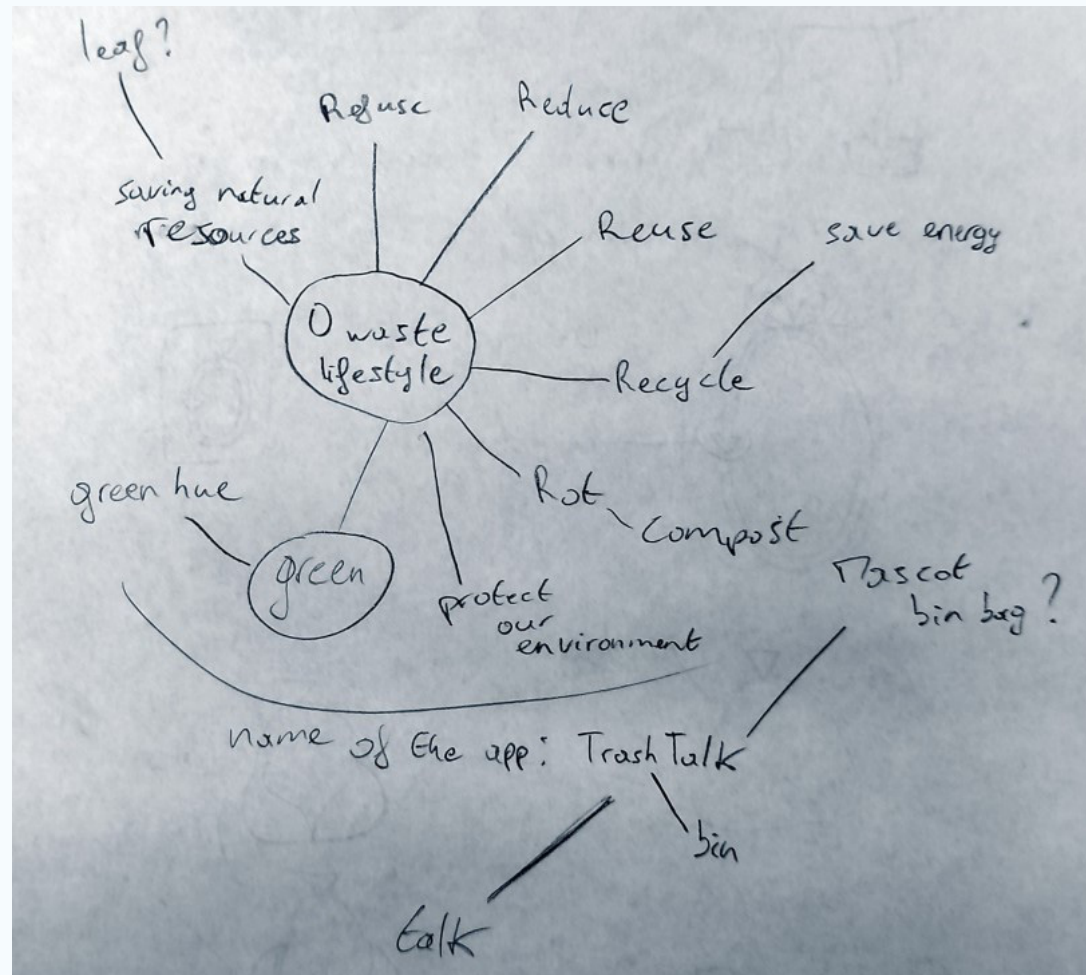 leaf?
Refuse
Reduce
saving natural
resources
Reuse
save energy
0 waste
lifestyle
Recycle
green hue
Rot
Compost
green
protect
our
environment
Mascot
bin bag?
name of the app: TrashTalk
bin
talk